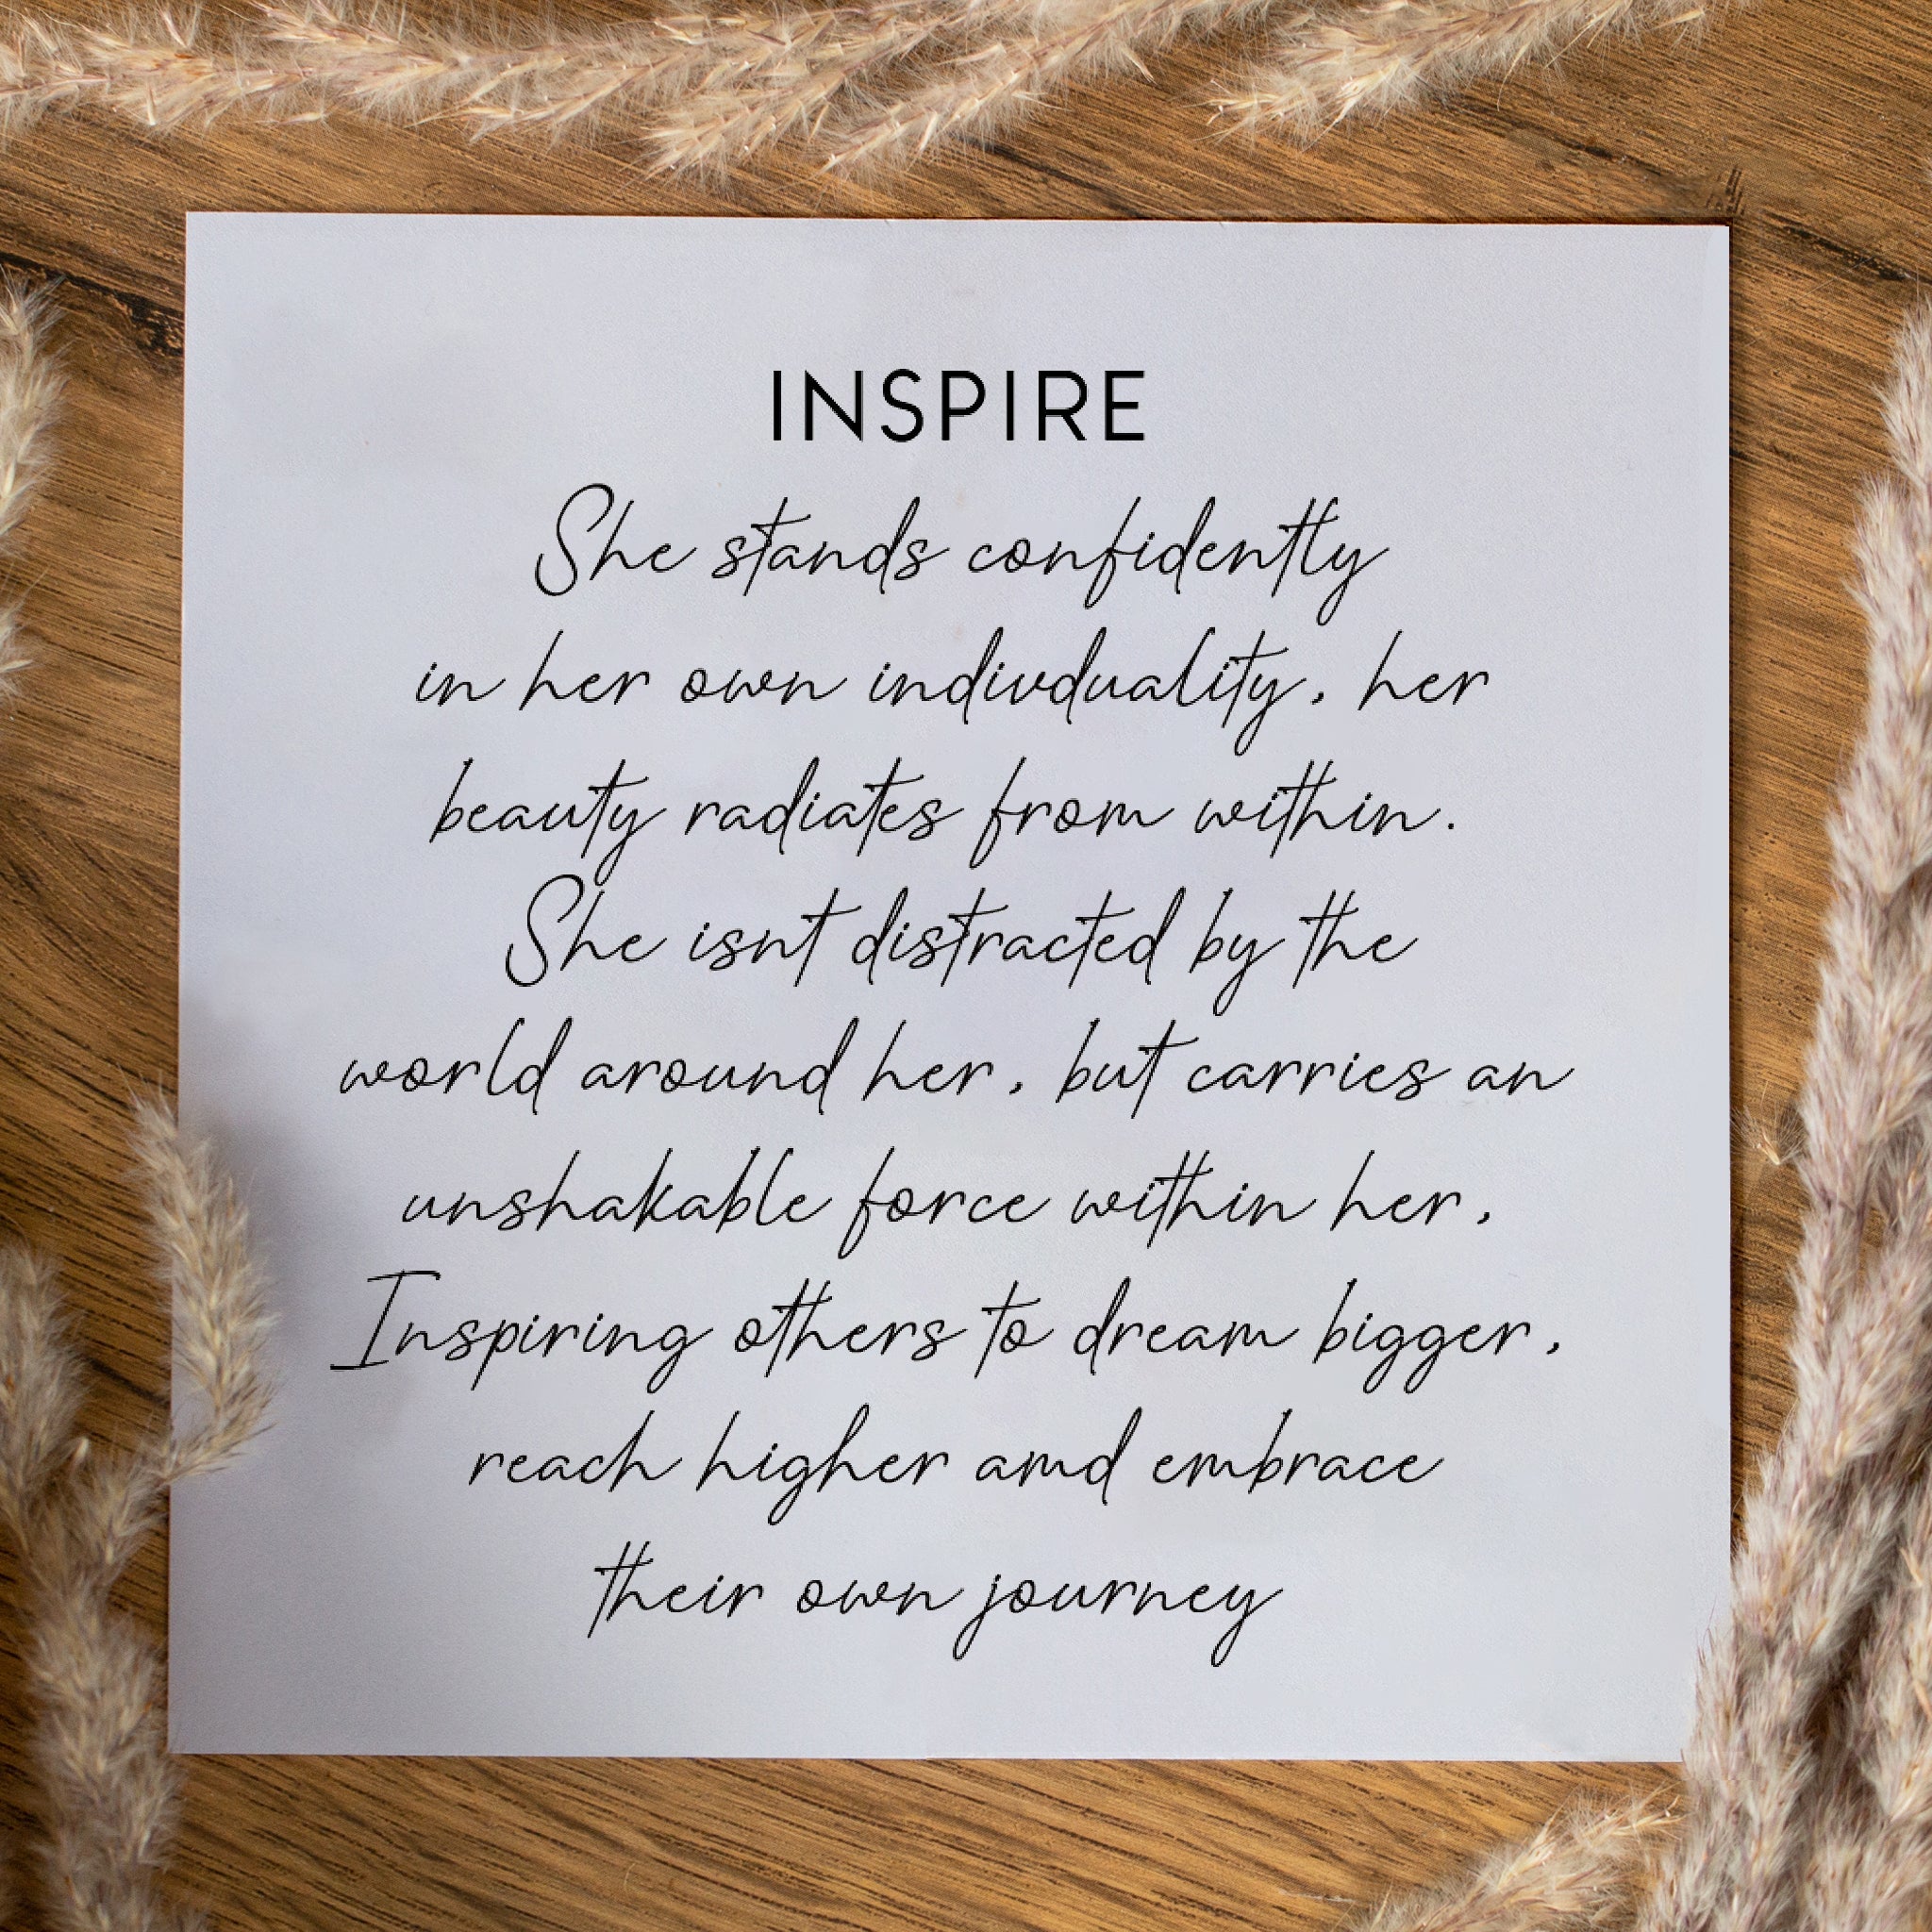 INSPIRE
She stands confidently
in her own indivduality, her
beauty radiates from within.
She isnt distracted by the
world around her, but carries an
unshakable force within her,
Inspiring others to dream bigger,
reach higher amd embrace
their own journey